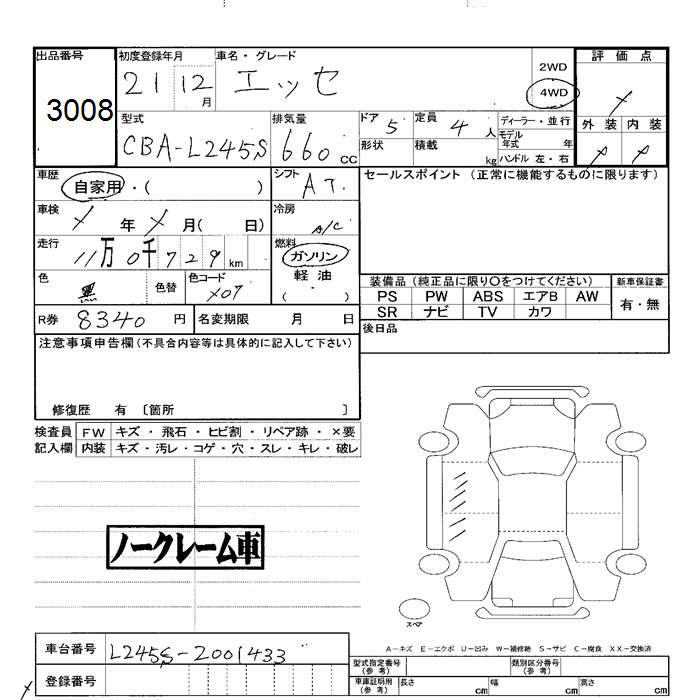 出品番号 初度登録年月 車名・グレード 2WD 評価点
3008 21 12月 エッセ 4WD
型式 排気量 ドア 定員 ディーラー・並行 外装 内装
CBA-L245S 660 CC 5 4 人 モデル年式 年
形状 積載 kg ハンドル 左・右
車歴 自家用・( ) シフト AT セールスポイント (正常に機能するものに限ります)
車検 年 月( 日) 冷房 A/C
走行 11万0千729km 燃料 ガソリン 軽油 ( )
色 黒 色替 色コード X07 装備品 (純正品に限り○をつけてください) 新車保証書
PS PW ABS エアB AW 有・無
SR ナビ TV カワ
R券 8340 円 名変期限 月 日 後日品
注意事項申告欄(不具合内容等は具体的に記入して下さい)
修復歴 有 〔箇所 〕
検査員 FW キズ・飛石・ヒビ割・リペア跡・×要
記入欄 内装 キズ・汚レ・コゲ・穴・スレ・キレ・破レ
ノークレーム車
スペア
A-キズ E-エクボ U-凹み W-補修跡 S-サビ C-腐食 XX-交換済
車台番号 L245S-2001433 型式指定番号(参考) 類別区分番号(参考)
登録番号 車庫証明用(参考) 長さ cm 幅 cm 高さ cm